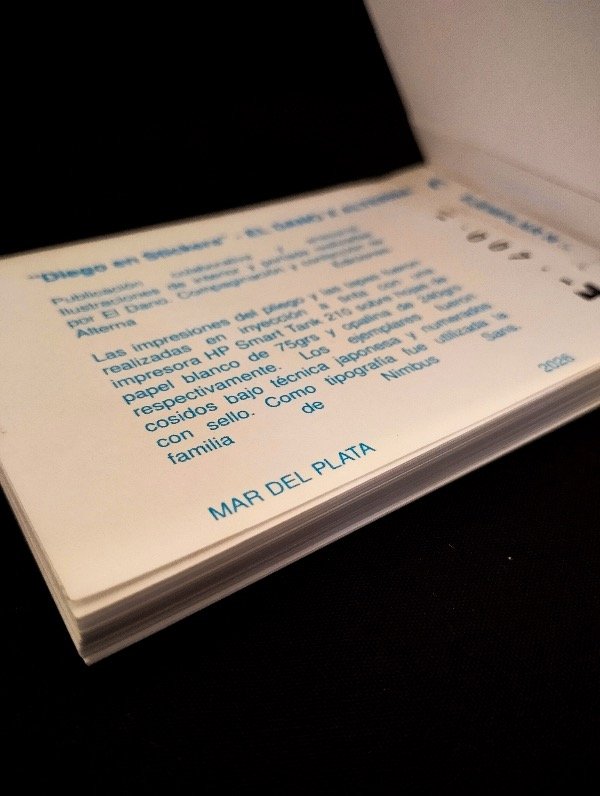 "Diego en Stickers" - EL DANO Y ALTERNA
Publicación colaborativa y
Ilustraciones de interior y portada realizadas
por El Dano. Compaginación y
Alterna
Las impresiones del pliego y las tapas fueron
realizadas en inyección a tinta con una
impresora HP Smart Tank 210 sobre hojas de
papel blanco de 75grs y opalina de
respectivamente. Los ejemplares fueron
cosidos bajo técnica japonesa y numerados
con sello. Como tipografía fue utilizada la
familia de Nimbus Sans.
MAR DEL PLATA 2026